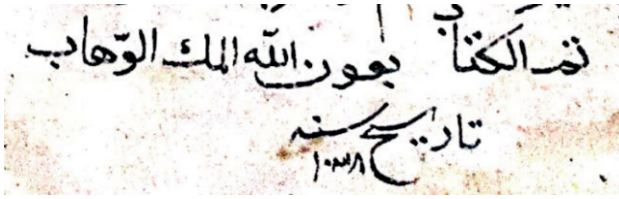 تمت الكتاب بعون الله الملك الوّهاب
تاريخ سنه
١٠٣٨